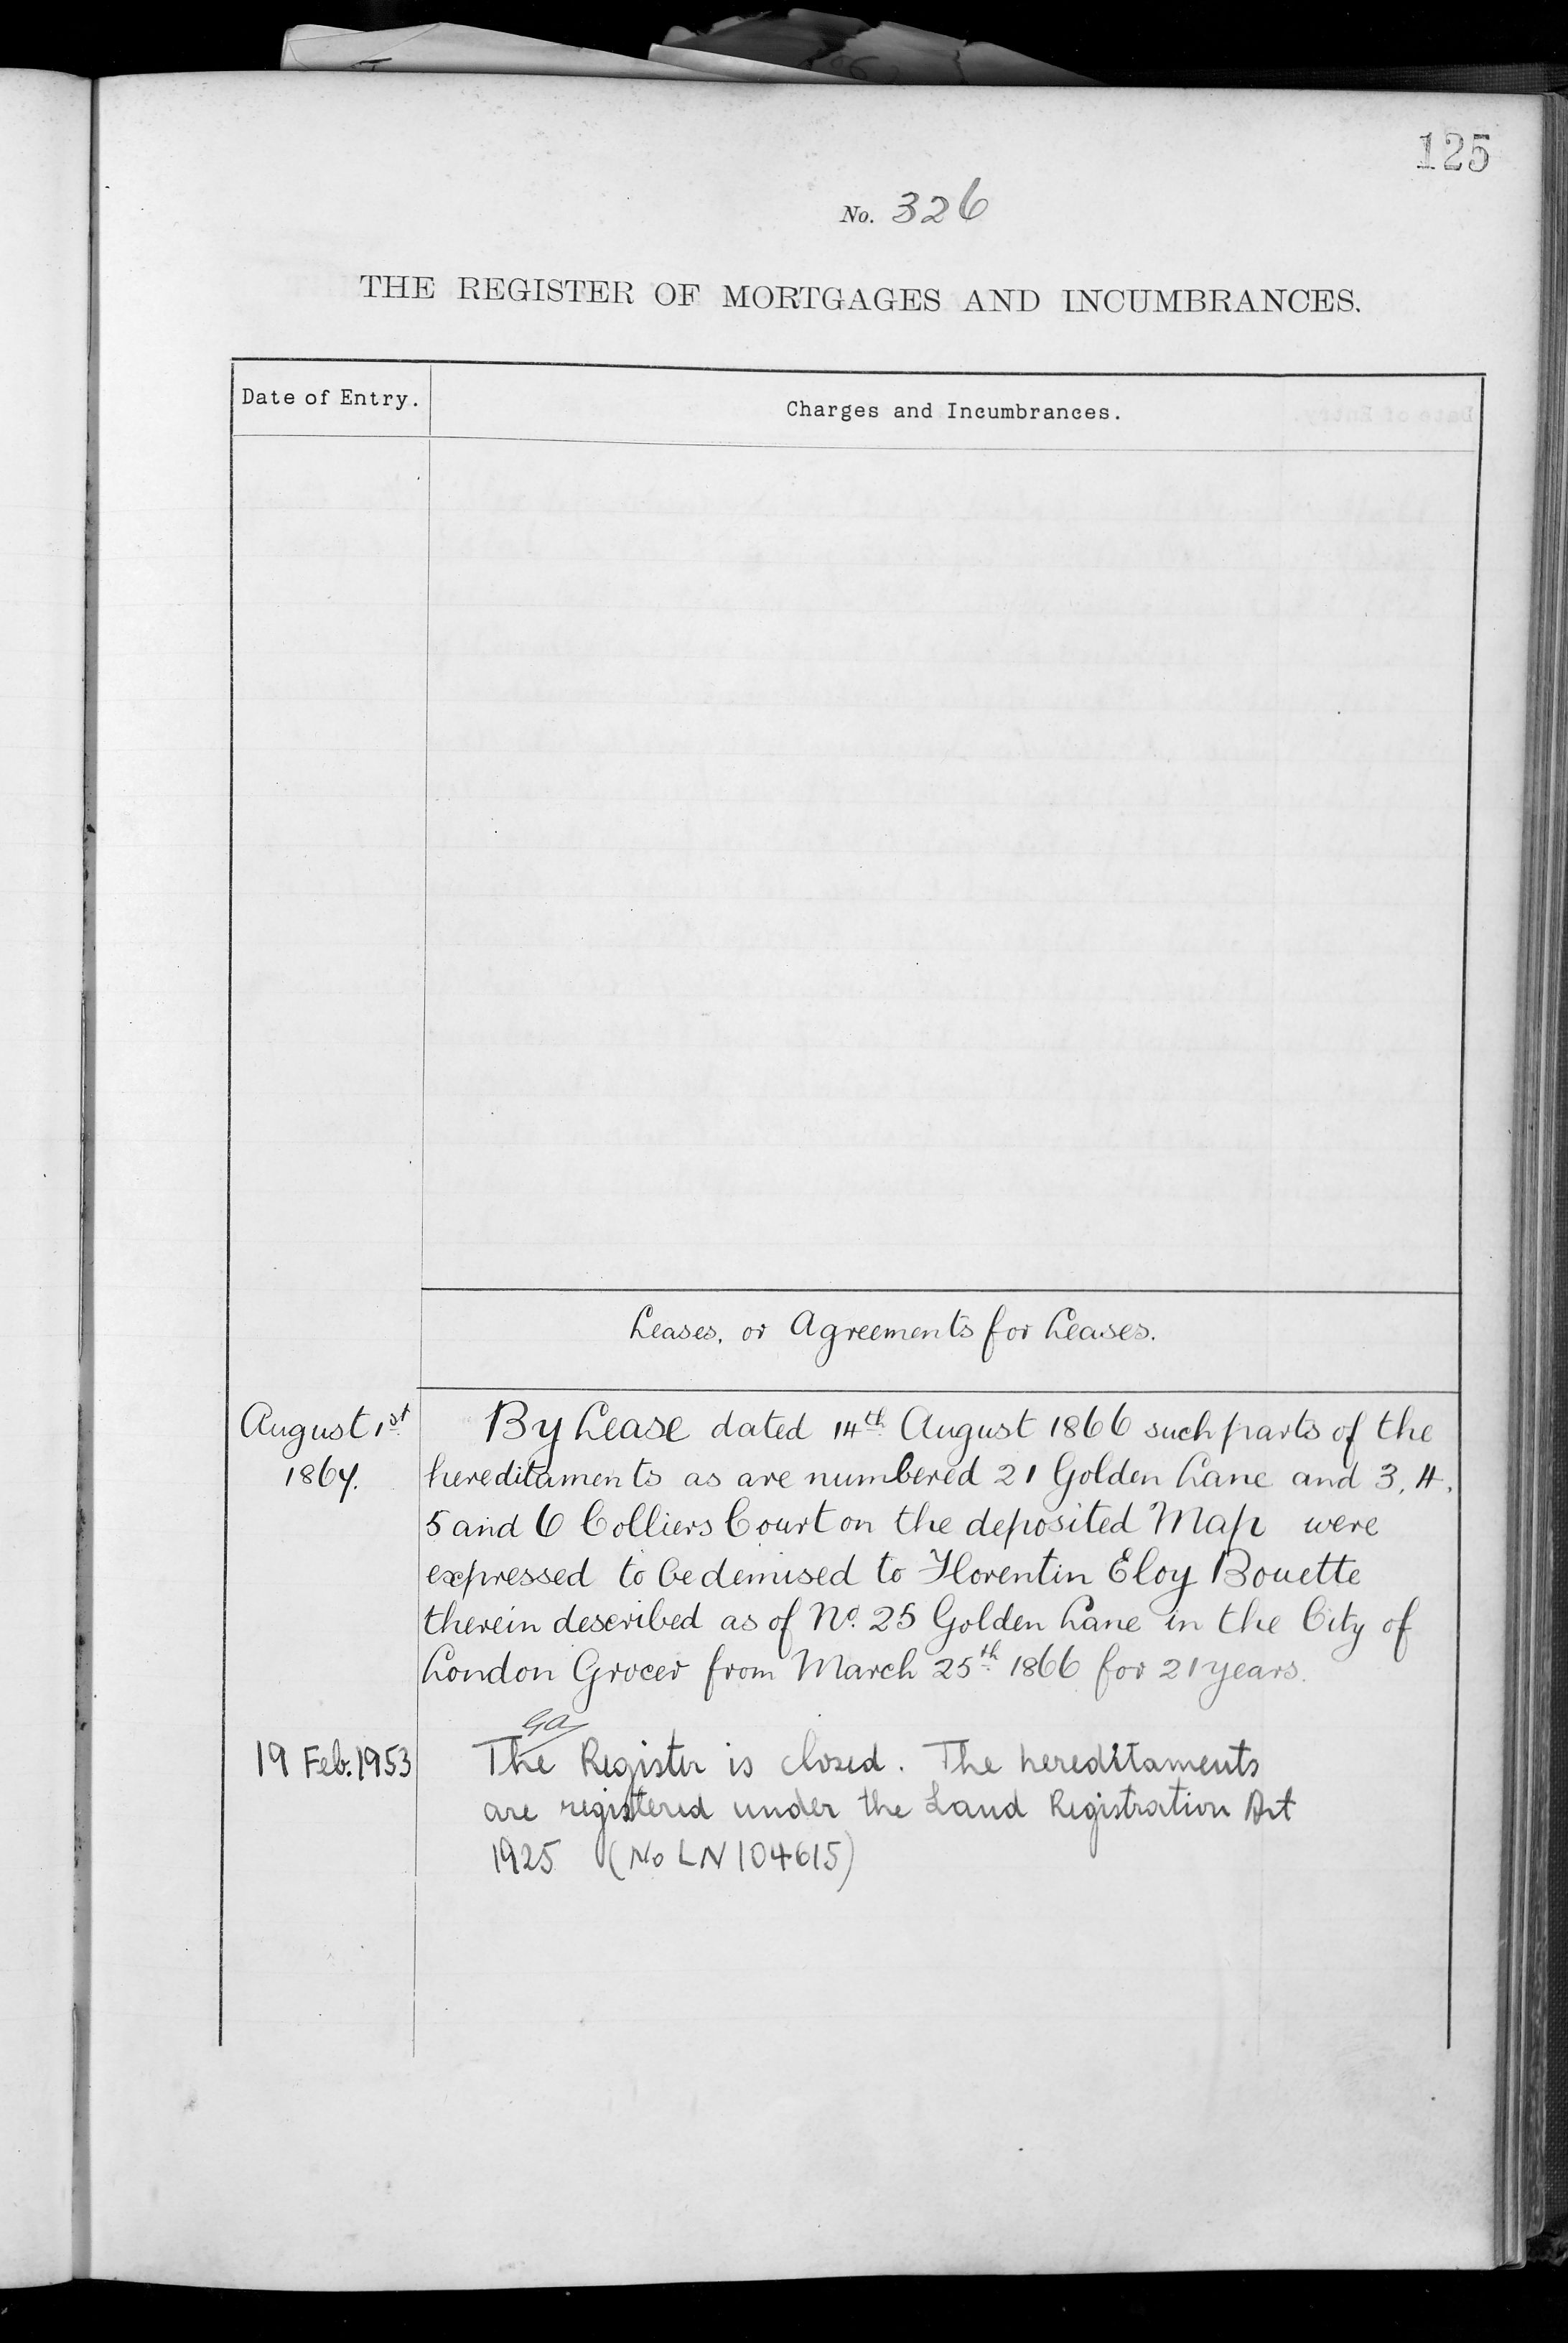 125
No. 326
THE REGISTER OF MORTGAGES AND INCUMBRANCES.
Date of Entry.
Charges and Incumbrances.
Leases, or Agreements for Leases.
August 1st
1867.
By Lease dated 14th August 1866 such parts of the
hereditaments as are numbered 21 Golden Lane and 3, 4,
5 and 6 Colliers Court on the deposited Map were
expressed to be demised to Florentin Eloy Bouette
therein described as of No. 25 Golden Lane in the City of
London Grocer from March 25th 1866 for 21 years.
19 Feb. 1953
The Register is closed. The hereditaments
are registered under the Land Registration Act
1925 (No LN 104615)